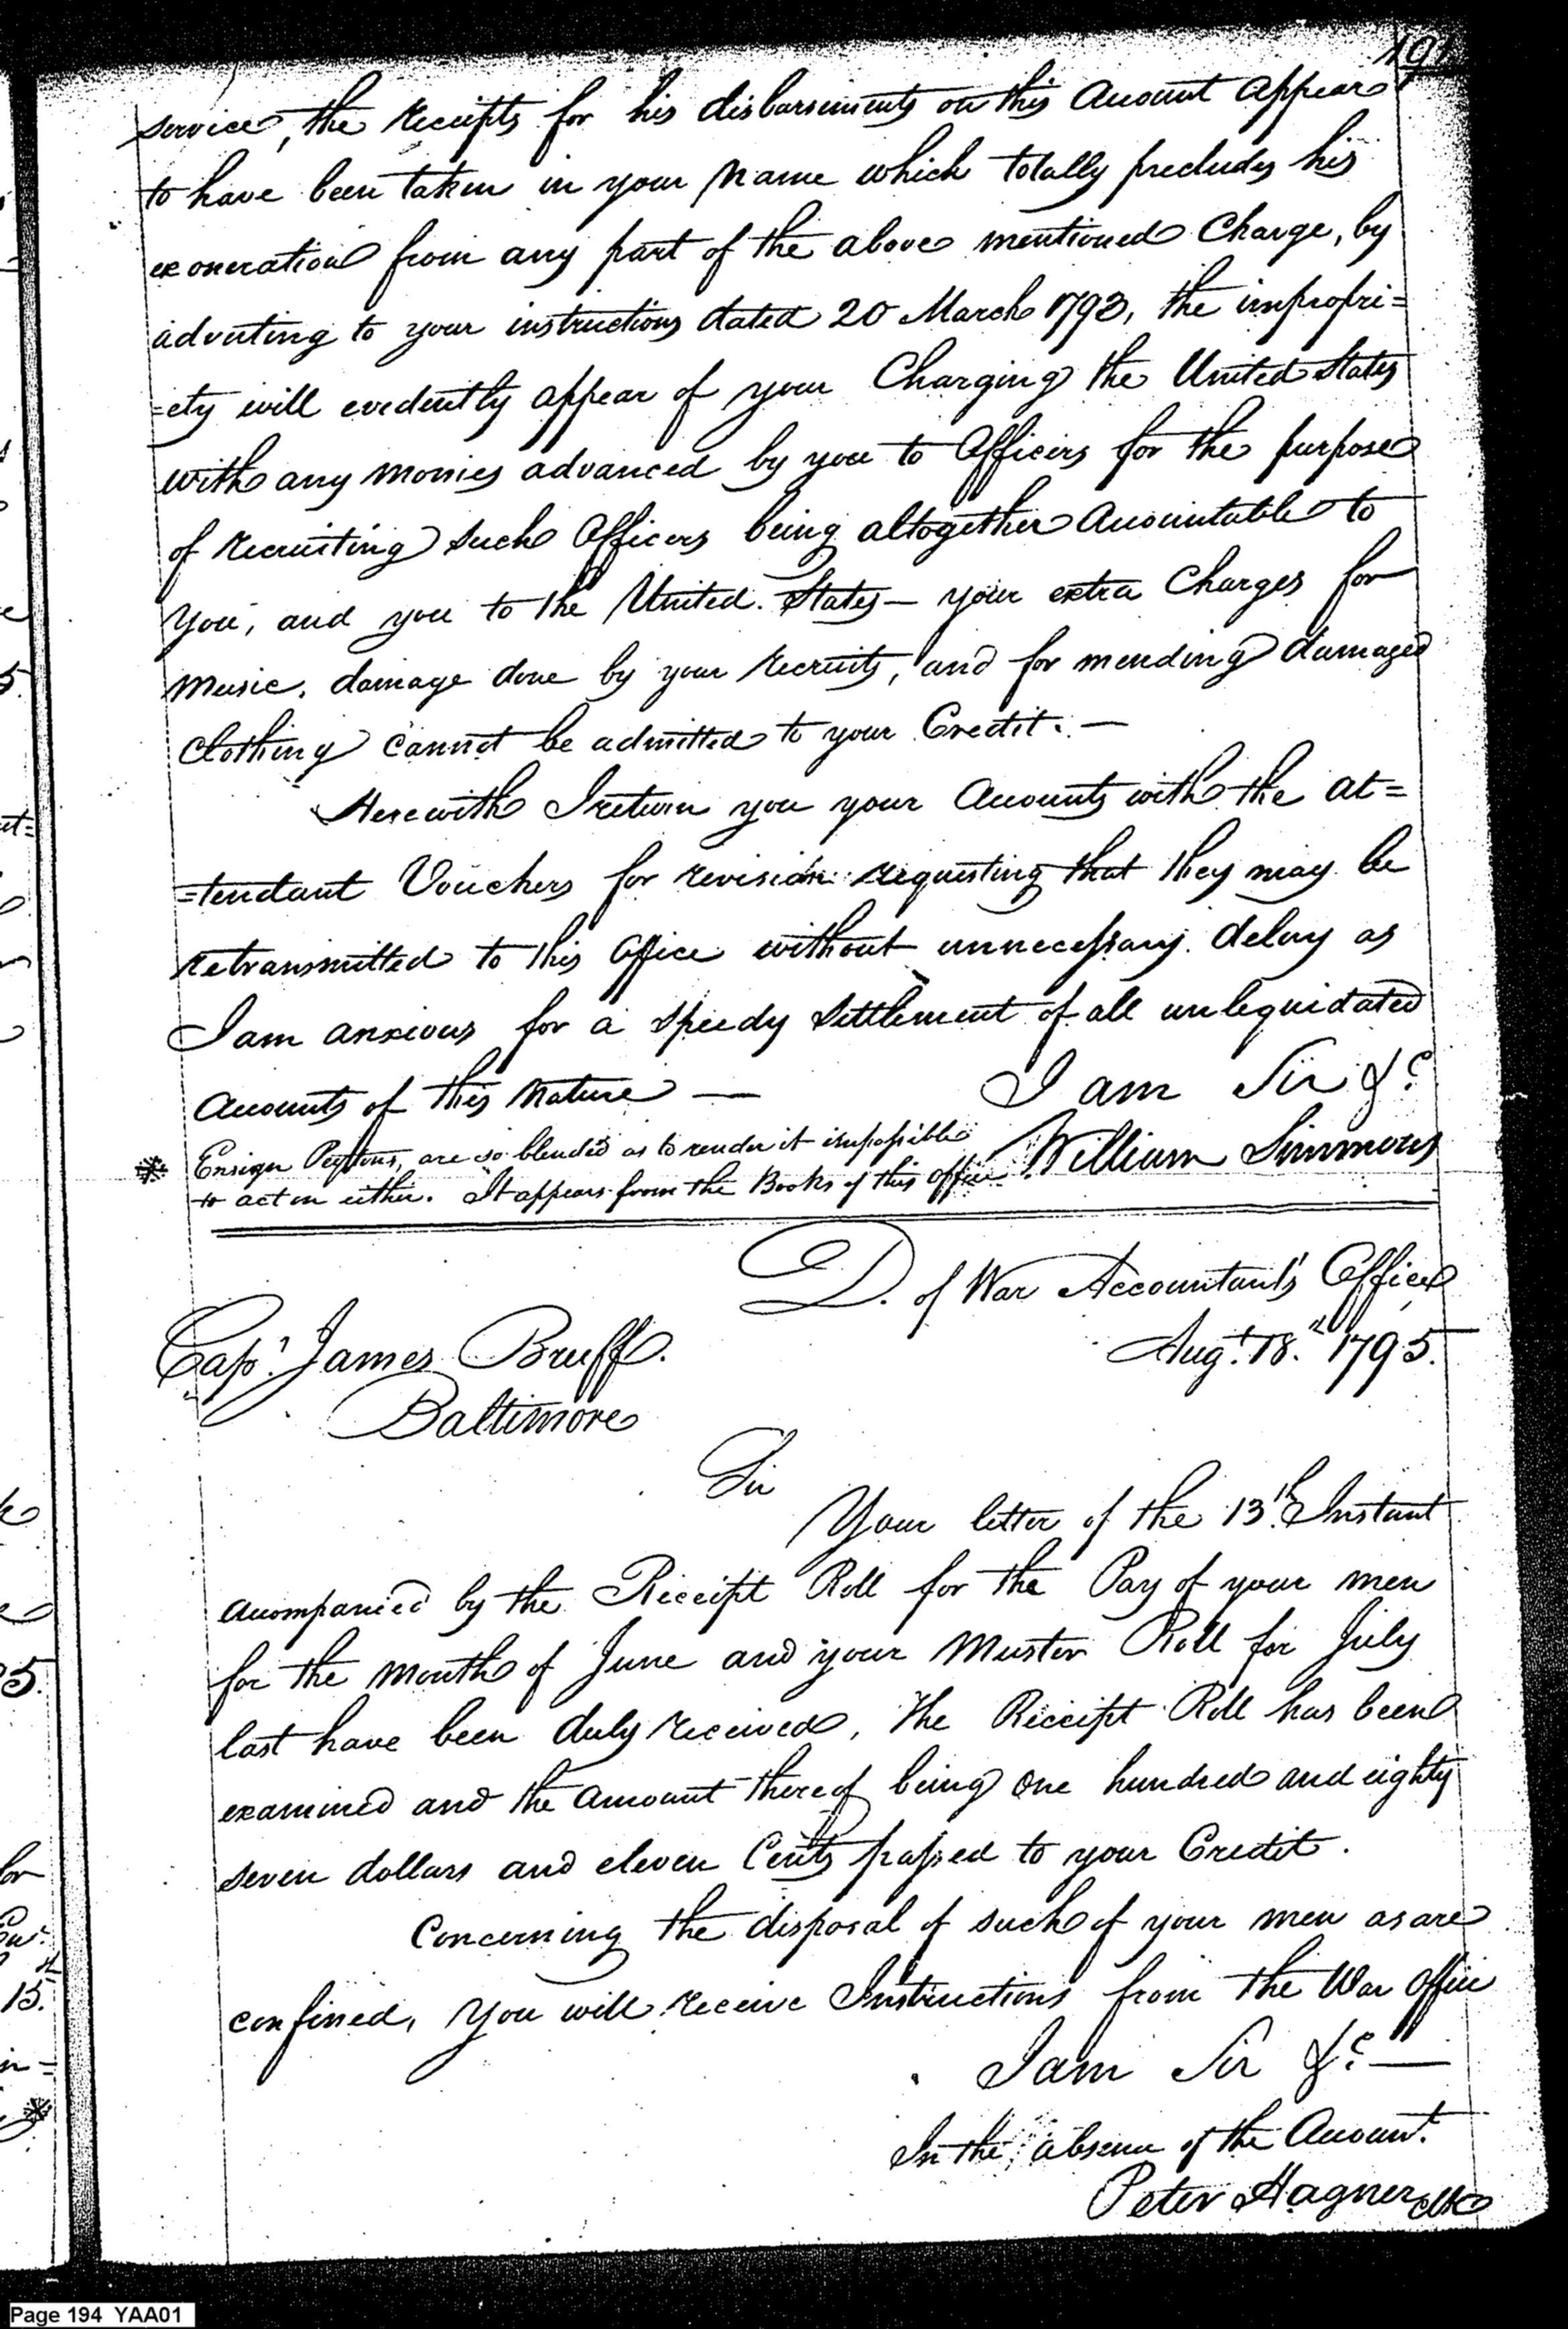 191
service, the receipts for his disbursements on this Account appear
to have been taken in your name which totally precludes his
exoneration from any part of the above mentioned Charge, by
adverting to your instructions dated 20 March 1793, the impropri=
=ety will evidently appear of your Charging the United States
with any monies advanced by you to Officers for the purpose
of recruiting such Officers being altogether Accountable to
you, and you to the United States — your extra Charges for
music, damage done by your recruits, and for mending damaged
Clothing cannot be admitted to your Credit. —
Herewith I return you your Accounts with the at=
=tendant Vouchers for revision requesting that they may be
retransmitted to this Office without unnecessary delay as
I am anxious for a speedy Settlement of all unliquidated
Accounts of this Nature —
I am Sir &c.
* Ensign Peytons, are so blended as to render it impossible
to act on either. It appears from the Books of this Office
William Simmons
D. of War Accountant's Office
Augt. 18.th 1795.
Capt. James Bruff.
Baltimore
Sir
Your letter of the 13th. Instant
accompanied by the Receipt Roll for the Pay of your men
for the month of June and your Muster Roll for July
last have been duly received, The Receipt Roll has been
examined and the amount thereof being One hundred and eighty
seven dollars and eleven Cents passed to your Credit.
Concerning the disposal of such of your men as are
confined, you will receive Instructions from the War Office
I am Sir &c. —
In the absence of the Account.
Peter Hagner Clk
Page 194 YAA01